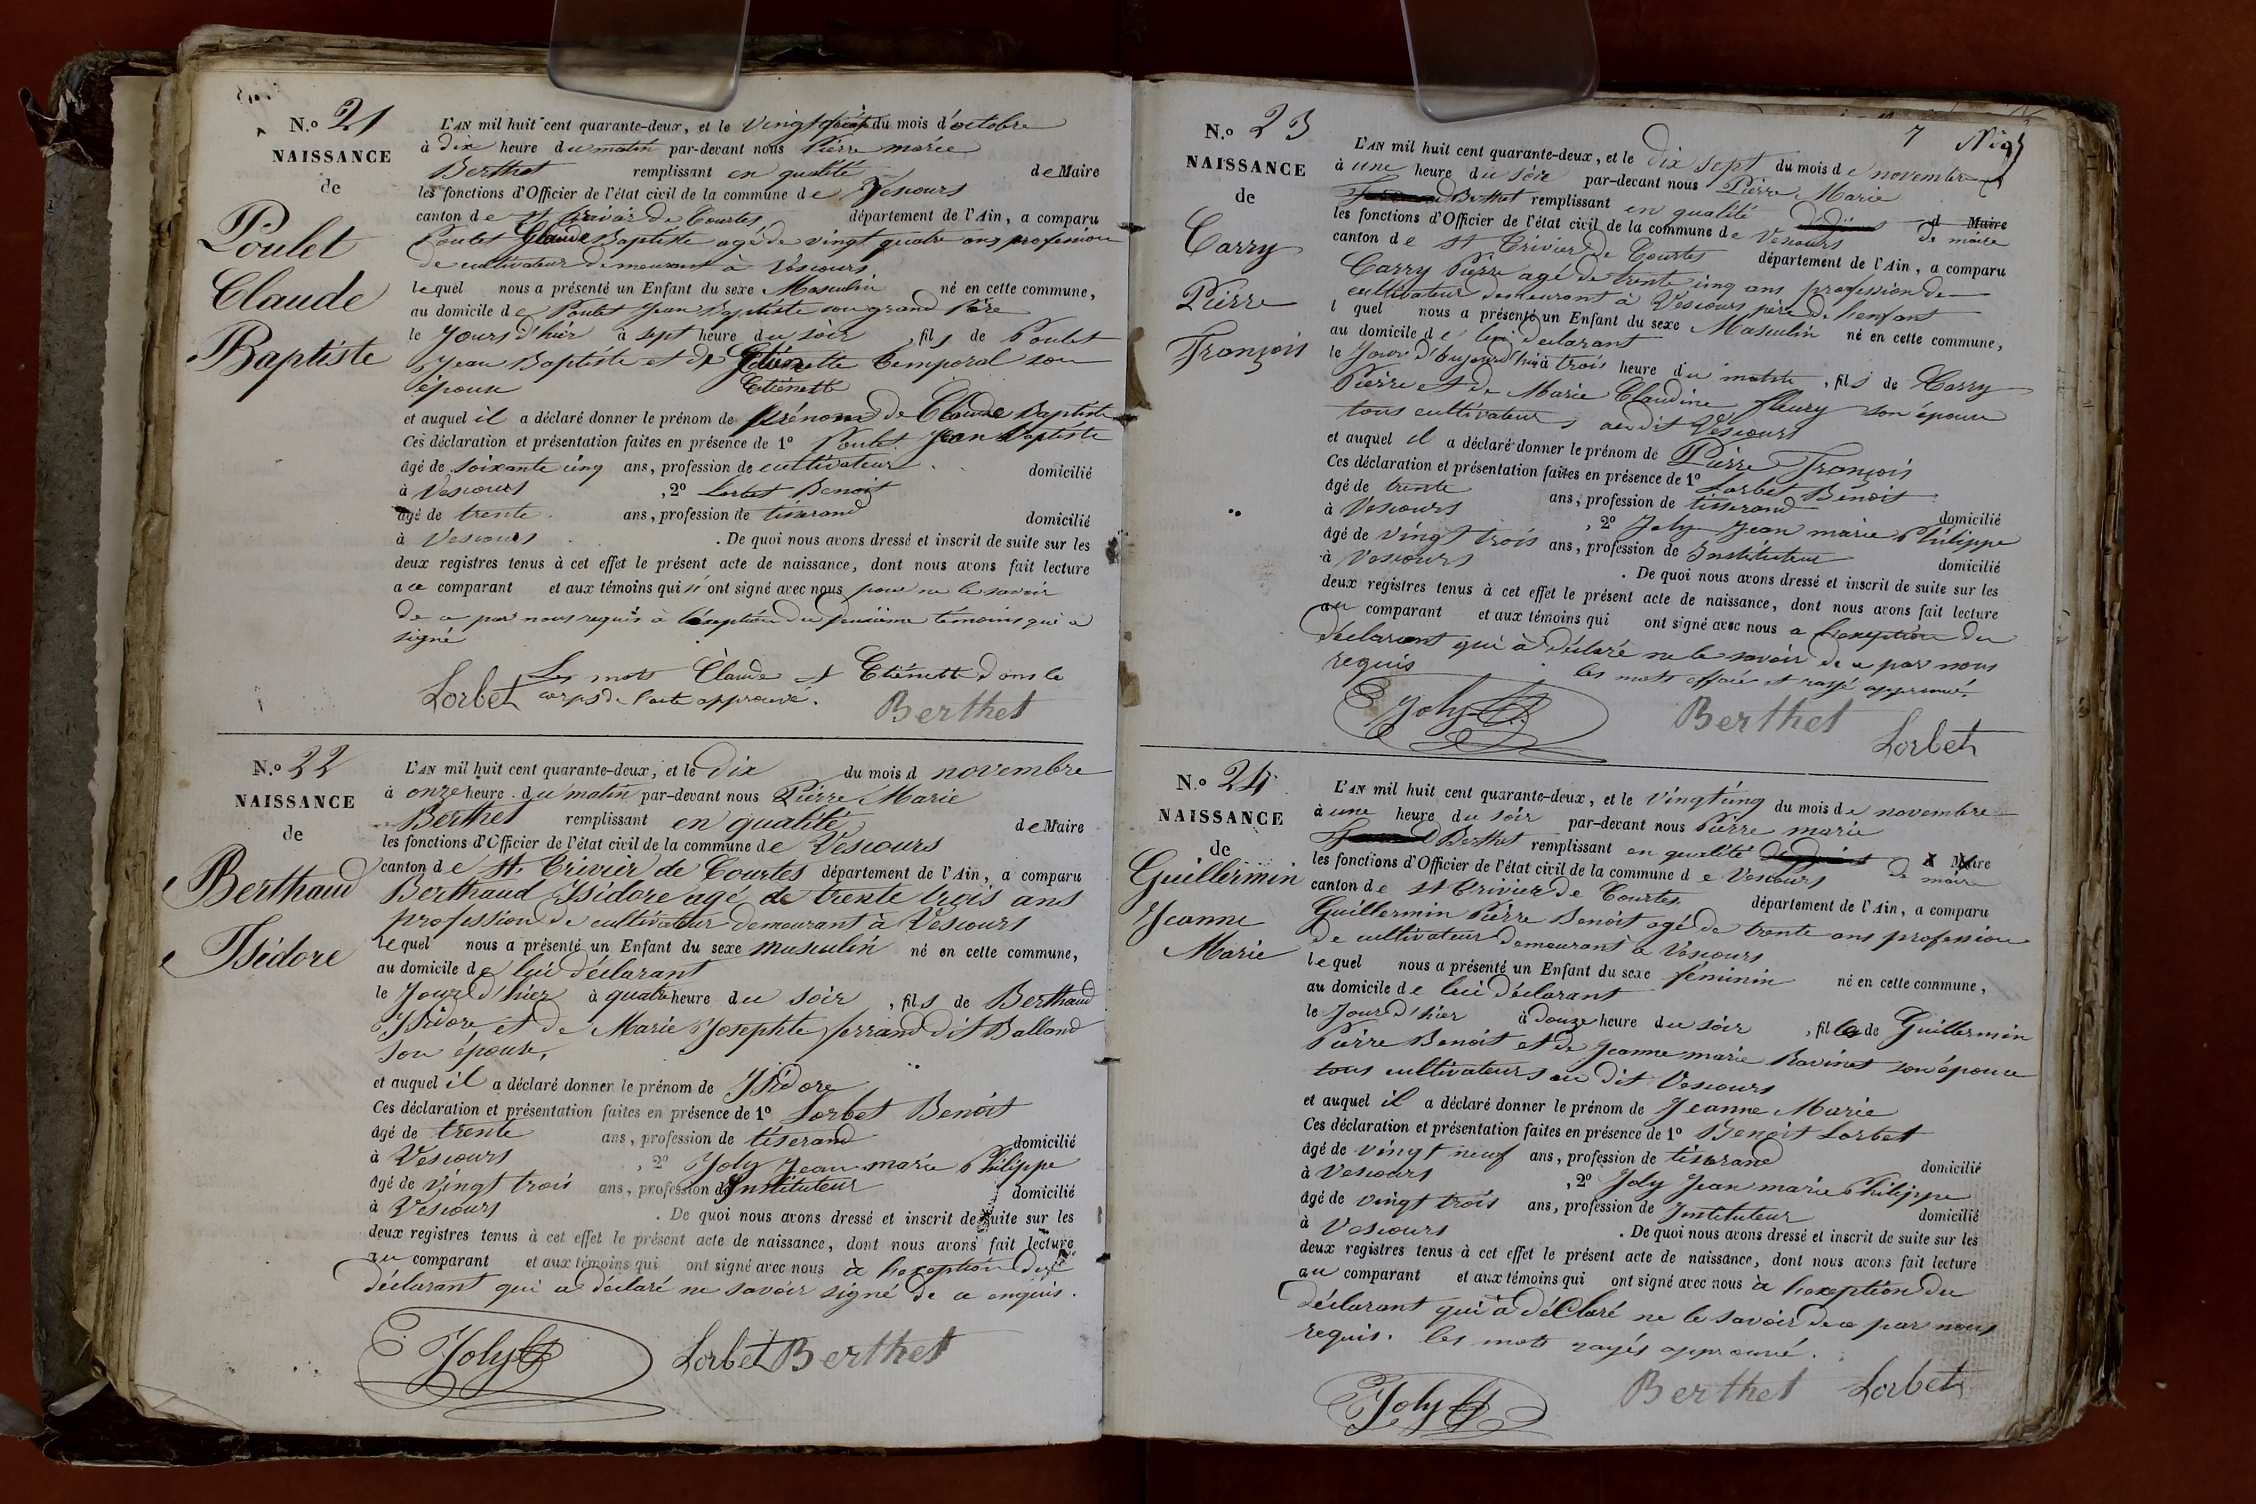 N.o 21
NAISSANCE
de
Poulet
Claude
Baptiste
L'AN mil huit cent quarante-deux, et le vingt du mois d'octobre
à dix heure du matin par-devant nous Pierre marie
Berthet remplissant en qualité de Maire
les fonctions d'Officier de l'état civil de la commune de Vescours
canton de st trivier de Courtes département de l'Ain, a comparu
Poulet Claude Baptiste agé de vingt quatre ans profession
de cultivateur demeurant à Vescours
lequel nous a présenté un Enfant du sexe Masculin né en cette commune,
au domicile de Poulet Jean Baptiste son grand Père
le Jours d'hier à sept heure du soir, fils de Poulet
Jean Baptiste et de Temporal son
épouse Etiénette
et auquel il a déclaré donner le prénom de prénoms de Claude Baptiste
Ces déclaration et présentation faites en présence de 1o Poulet Jean Baptiste
âgé de soixante cinq ans, profession de cultivateur domicilié
à Vescours, 2o Lorbet Benoit
âgé de trente ans, profession de tisserand domicilié
à Vescours. De quoi nous avons dressé et inscrit de suite sur les
deux registres tenus à cet effet le présent acte de naissance, dont nous avons fait lecture
a ce comparant et aux témoins qui n'ont signé avec nous pour ne le savoir
de ce par nous requis à l'exeption du deuxième témoins qui a
signé
Les mots Claude et Etiénette dans le
corps de l'acte approuvé.
Lorbet Berthet
N.o 22
NAISSANCE
de
Berthaud
Isidore
L'AN mil huit cent quarante-deux, et le dix du mois d novembre
à onze heure du matin par-devant nous Pierre Marie
Berthet remplissant en qualité de Maire
les fonctions d'Officier de l'état civil de la commune de Vescours
canton de st. Trivier de Courtes département de l'Ain, a comparu
Berthaud Isidore agé de trente trois ans
profession de cultivateur demeurant à Vescours
lequel nous a présenté un Enfant du sexe musculin né en cette commune,
au domicile de lui déclarant
le Jour d'hier à quatre heure du soir, fils de Berthaud
Isidore et de Marie Josephte ferrand dit Balland
son épouse,
et auquel il a déclaré donner le prénom de Isidore
Ces déclaration et présentation faites en présence de 1o Lorbet Benoit
âgé de trente ans, profession de tiserand domicilié
à Vescours, 2o Joly Jean marie Philippe
âgé de vingt trois ans, profession de Instituteur domicilié
à Vescours. De quoi nous avons dressé et inscrit de suite sur les
deux registres tenus à cet effet le présent acte de naissance, dont nous avons fait lecture
au comparant et aux témoins qui ont signé avec nous à l'exeption du
déclarant qui a déclaré ne savoir signé de ce enquis.
Joly Lorbet Berthet
7
N.o 23
NAISSANCE
de
Carry
Pierre
François
L'AN mil huit cent quarante-deux, et le dix sept du mois de novembre
à une heure du soir par-devant nous Pierre Marie
Berthet remplissant en qualité d Maire
les fonctions d'Officier de l'état civil de la commune de Vescours de maire
canton de st Trivier de Courtes département de l'Ain, a comparu
Carry Pierre agé de trente cinq ans profession de
cultivateur demeurant à Vescours père de l'enfant
l quel nous a présenté un Enfant du sexe Masculin né en cette commune,
au domicile de lui déclarant
le Jour d'aujourd'hui à trois heure du matin, fils de Carry
Pierre et de Marie Claudine fleury son épouse
tous cultivateurs au dit Vescours
et auquel il a déclaré donner le prénom de Pierre François
Ces déclaration et présentation faites en présence de 1o Lorbet Benoit
âgé de trente ans, profession de tisserand domicilié
à Vescours, 2o Joly Jean marie Philippe
âgé de vingt trois ans, profession de Instituteur domicilié
à Vescours. De quoi nous avons dressé et inscrit de suite sur les
deux registres tenus à cet effet le présent acte de naissance, dont nous avons fait lecture
au comparant et aux témoins qui ont signé avec nous a l'exeption du
déclarant qui à déclaré ne le savoir de ce par nous
requis les mots effacé et rayé approuvé.
Joly Berthet Lorbet
N.o 24
NAISSANCE
de
Guillermin
Jeanne
Marie
L'AN mil huit cent quarante-deux, et le vingt cinq du mois de novembre
à une heure du soir par-devant nous Pierre marie
Berthet remplissant en qualité Maire
les fonctions d'Officier de l'état civil de la commune de Vescours de maire
canton de st Trivier de Courtes département de l'Ain, a comparu
Guillermin Pierre Benoit agé de trente ans profession
de cultivateur demeurant à Vescours
lequel nous a présenté un Enfant du sexe féminin né en cette commune,
au domicile de lui déclarant
le Jour d'hier à douze heure du soir, fille de Guillermin
Pierre Benoit et de Jeanne marie Ravinet son épouse
tous cultivateurs au dit Vescours
et auquel il a déclaré donner le prénom de Jeanne Marie
Ces déclaration et présentation faites en présence de 1o Benoit Lorbet
âgé de vingt neuf ans, profession de tisserand domicilié
à Vescours, 2o Joly Jean marie Philippe
âgé de vingt trois ans, profession de Instituteur domicilié
à Vescours. De quoi nous avons dressé et inscrit de suite sur les
deux registres tenus à cet effet le présent acte de naissance, dont nous avons fait lecture
au comparant et aux témoins qui ont signé avec nous à l'exeption du
déclarant qui à déclaré ne le savoir de ce par nous
requis. les mots rayés approuvé.
Joly Berthet Lorbet